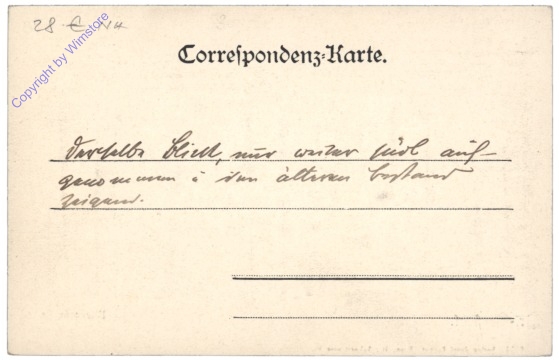 28 €
Copyright by Wimstore
Correspondenz-Karte.
Derselbe Blick, nur weiter südl auf-
genommen u den älteren Bestand
zeigend.